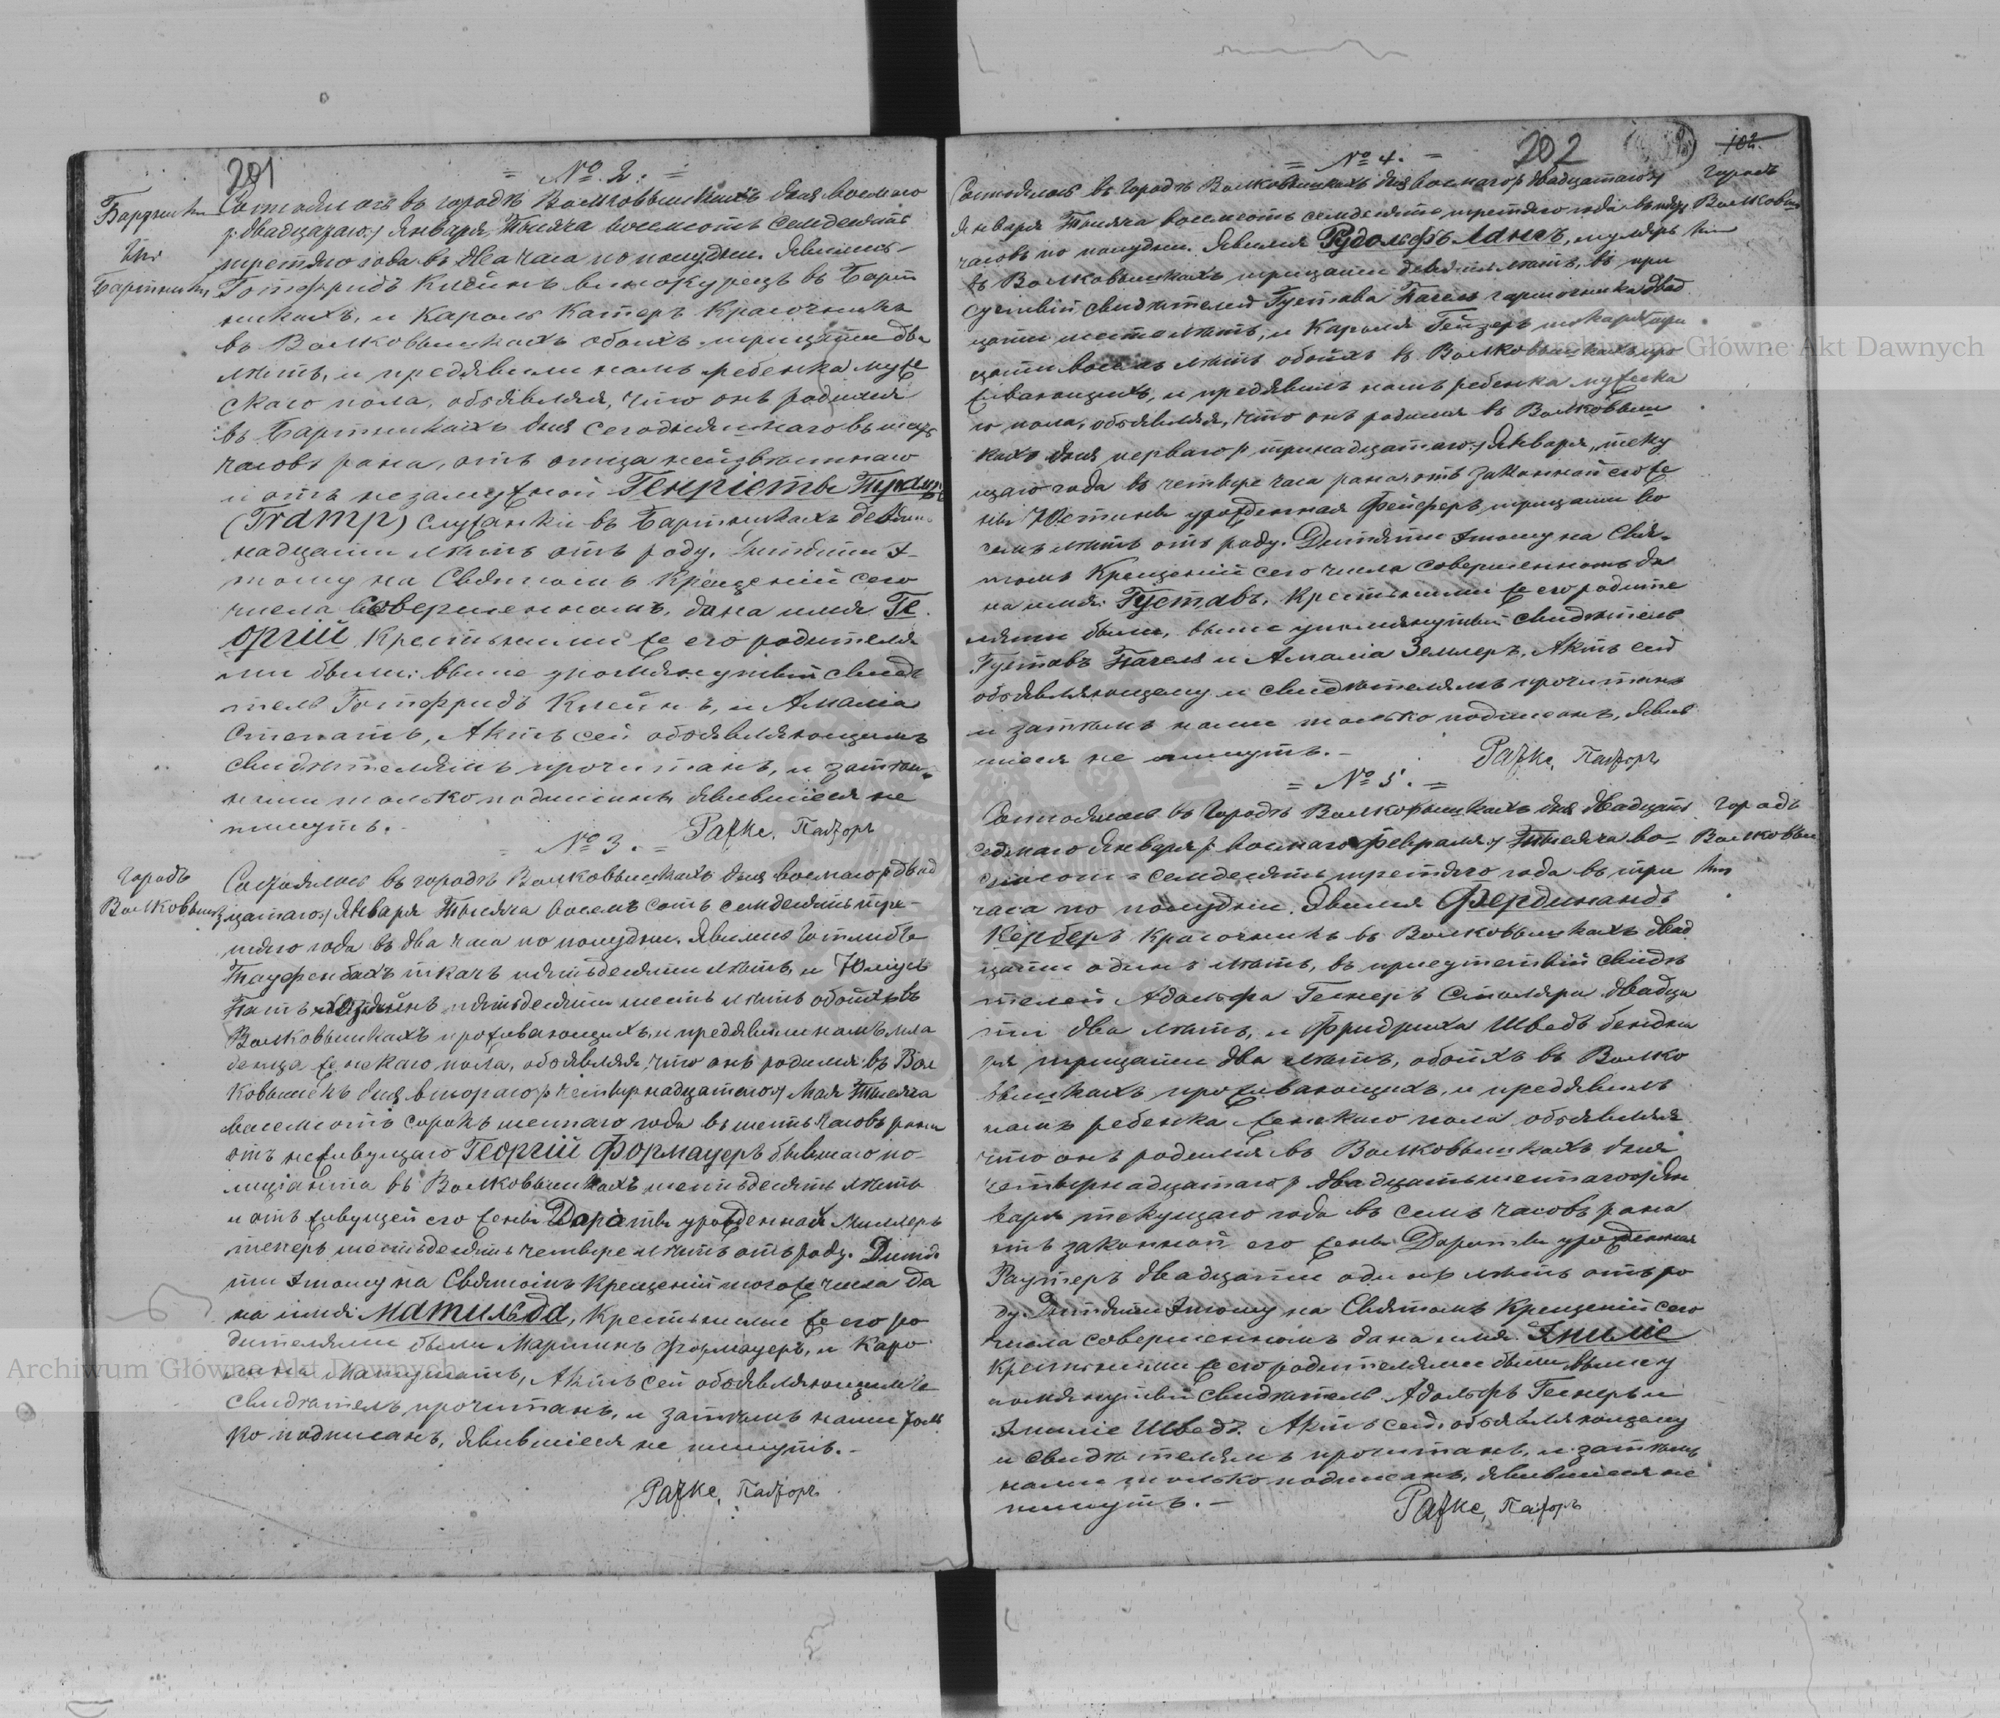 201
= № 2. =
Бартники
Состоялось въ городѣ Волковышкахъ дня восмаго
/:двадцатаго:/ Января, Тысяча восемсотъ семдесятъ
третьяго года въ два часа по полудни. Явились
Бартники
Готфридъ Клейнъ винокурецъ въ Барт
никахъ, и Кароль Катеръ Красочникъ
въ Волковышкахъ обоихъ тридцати два
лѣтъ, и предявили намъ ребенка муже
скаго пола, объявляя, что онъ родился
въ Бартникахъ дня сегодняшнаго въ шесть
часовъ рана, отъ отца неизвѣстнаго
и отъ незамужной Генріеты Трампъ
(Tramp) служанки въ Бартникахъ девят
надцати лѣтъ отъ роду. Дитяти э-
тому на Святомъ Крещеній сего
числа совершенномъ, дана имя Ге
оргій Крестными же его родителя
ми были: выше упомянутый свидѣ
тель Готфридъ Клейнъ, и Амалія
Актъ сей объявляющимъ
свидѣтелямъ прочитанъ, и затѣмъ
нами только подписанъ, явившіеся не
пишутъ.-
Рафке, Пасторъ
= № 3. =
Городъ
Волковышки
Состоялось въ городѣ Волковышкахъ дня восмаго /:двад
цатаго:/ Января Тысяча восемъ сотъ семдесятъ тре-
тяго года въ два часа по полудни. Явились Готлибъ
Тауфенбахъ ткачъ пятьдесяти лѣтъ, и Юлиусъ
пятьдесяти шесть лѣтъ обоихъ въ
Волковышкахъ проживающихъ, и предявили намъ мла
денца женскаго пола, объявляя, что онъ родился въ Вол
ковышкахъ дня втораго /:четырнадцатаго:/ Мая Тысяча
восемсотъ сорокъ шестаго года въ шесть часовъ рана
отъ неживущаго Георгій Формауеръ бывшаго по-
лиціанта въ Волковышкахъ шестьдесятъ лѣтъ
и отъ живущей его жены Доротѣ урожденной Миллеръ
теперь шестьдесятъ четыре лѣтъ отъ роду. Дитя
ти этому на Святомъ Крещеній тогоже числа да
на имя: Матильда, Крестными же его ро
дителями были Мартинъ Формауеръ, и Каро
лина Актъ сей объявляющимъ и
свидѣтель прочитанъ, и затѣмъ нами толь
ко подписанъ, явившіеся не пишутъ.-
Рафке, Пасторъ
202
102.
= № 4. =
Городъ
Волковыш
ки
Состоялось въ городѣ Волковышкахъ дня восмаго /:двадцатаго:/
Января Тысяча восемсотъ семдесятъ третяго года въ пять
часовъ по полудни. Явился Рудольфъ Лангъ, муляръ
въ Волковышкахъ тридцати девять лѣтъ, въ при
сутствій свидѣтелей Густава Пагель гарночника двад
цати шести лѣтъ, и Кароля Гейзеръ токаря три
цати восемь лѣтъ обоихъ въ Волковышкахъ про
живающихъ, и предявилъ намъ ребенка мужска
го пола, объявляя, что онъ родился въ Волковыш
кахъ дня перваго /:тринадцатаго:/ Января, теку
щаго года въ четыре часа рана, отъ законной его же
ны Юстины урожденная Фейферъ, тридцати во
семь лѣтъ отъ роду. Дитяти этому на Свя-
томъ Крещеній сего числа совершенномъ да
на имя: Густавъ, Крестными же его родите
лями были, выше упомянутый свидѣтель
Густавъ Пагель и Амалія Землеръ, Актъ сей
объявляющему и свидѣтелямъ прочитанъ
и затѣмъ нами только подписанъ, явив
шіеся не пишутъ.-
Рафке, Пасторъ
= № 5. =
Городъ
Волковыш
ки
Состоялось въ городѣ Волковышкахъ дня двадцать
седмаго Января /:восмаго Февраля:/ Тысяча во-
семсотъ семдесятъ третяго года въ три
часа по полудни. Явился Фердинандъ
Керберъ красочникъ въ Волковышкахъ двад
цати одинъ лѣтъ, въ присутствій свидѣ
телей Адольфа Геснеръ Столяра двадца
ти два лѣтъ, и Фридриха Шведъ бендна
ря тридцати два лѣтъ, обоихъ въ Волко
вышкахъ проживающихъ, и предявилъ
намъ ребенка женскаго пола объявляя
что онъ родился въ Волковышкахъ дня
четырнадцатаго /:двадцать шестаго:/ Ян
варя текущаго года въ семь часовъ рана
отъ законной его жены Доротѣ урожденная
Раутеръ двадцати одинъ лѣтъ отъ ро
ду. Дитяти этому на Святомъ Крещеній сего
числа совершенномъ дана имя: Эмиліе
Крестными же его родителями были, выше у
помянутый свидѣтель Адольфъ Геснеръ и
Эмиліе Шведъ. Актъ сей объявляющему
и свидѣтелямъ прочитанъ, и затѣмъ
нами только подписанъ, явившіеся не
пишутъ.-
Рафке, Пасторъ
Archiwum Główne Akt Dawnych
Archiwum Główne Akt Dawnych